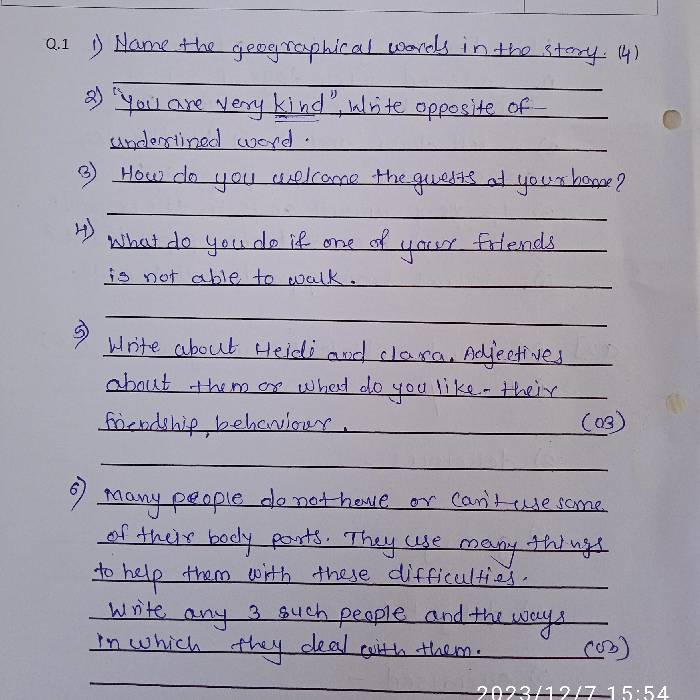 Q.1 1) Name the geographical words in the story. (4)
2) "You are very kind", Write opposite of -
underlined word.
3) How do you welcome the guests at your home?
4) What do you do if one of your friends
is not able to walk.
5) Write about Heidi and clara. Adjectives
about them or what do you like - their
friendship, behaviour. (03)
6) Many people do not have or can't use some
of their body parts. They use many things
to help them with these difficulties.
Write any 3 such people and the ways
in which they deal with them. (03)
2023/12/7 15:54